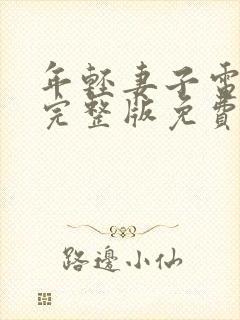 年輕妻子電
完整版免費
路邊小仙